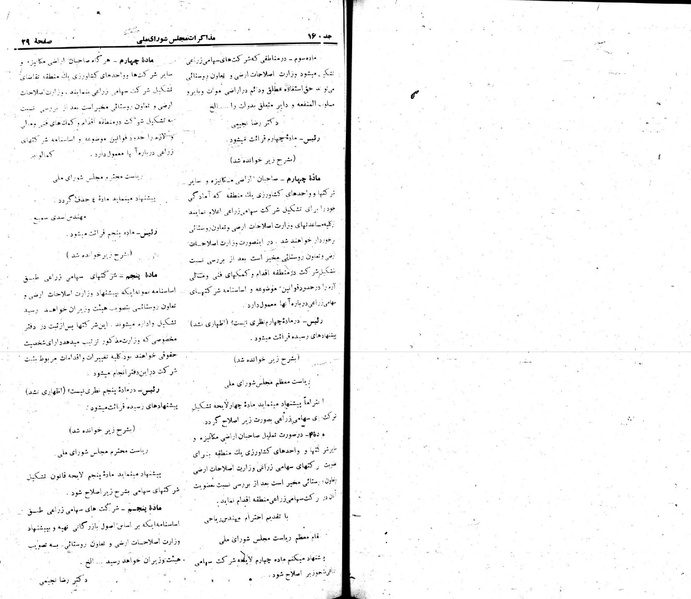 جلد ۱۶۰
مذاکرات مجلس شورای ملی
صفحهٔ ۲۹
ماده سوم ـ در مناطقی که شرکت‌های سهامی زراعی
تشکیل میشود وزارت اصلاحات ارضی و تعاون روستائی
میتواند حق استفاده مطلق و دائم در اراضی موات و بایر و
مسلوب‌المنفعه و دایر متعلق بدولت را ... الخ
دکتر رضا نجیمی
رئیس ـ مادهٔ چهارم قرائت میشود.
(بشرح زیر خوانده شد)
مادهٔ چهارم ـ صاحبان اراضی مکانیزه و سایر
شرکتها و واحدهای کشاورزی یک منطقه که آمادگی
خود را برای تشکیل شرکت سهامی زراعی اعلام نمایند
از کلیه مساعدتهای وزارت اصلاحات ارضی و تعاون روستائی
برخوردار خواهند شد. در اینصورت وزارت اصلاحات
ارضی و تعاون روستائی مخیر است بعد از بررسی نسبت
تشکیل شرکت در منطقه اقدام و کمکهای فنی و مالی
لازم را در حدود قوانین موضوعه و اساسنامه شرکتهای
سهامی زراعی درباره آنها معمول دارد.
رئیس ـ در مادهٔ چهارم نظری نیست؟ (اظهاری نشد)
پیشنهادهای رسیده قرائت میشود.
(بشرح زیر خوانده شد)
ریاست معظم مجلس شورای ملی
احتراماً پیشنهاد مینماید مادهٔ چهار لایحه تشکیل
شرکت‌های سهامی زراعی بصورت زیر اصلاح گردد.
ماده ۴ـ در صورت تمایل صاحبان اراضی مکانیزه و
سایر شرکتها و واحدهای کشاورزی یک منطقه برای
عضویت شرکتهای سهامی زراعی وزارت اصلاحات ارضی
و تعاون روستائی مخیر است بعد از بررسی نسبت عضویت
آن در شرکت سهامی زراعی منطقه اقدام نماید.
با تقدیم احترام مهندس ریاحی
مقام معظم ریاست مجلس شورای ملی
پیشنهاد میکنم ماده چهارم لایحه شرکت سهامی
زراعی بشرح زیر اصلاح شود.
مادهٔ چهارم ـ هرگاه صاحبان اراضی مکانیزه و
سایر شرکت‌ها و واحدهای کشاورزی یک منطقه تقاضای
تشکیل شرکت سهامی زراعی بنمایند، وزارت اصلاحات
ارضی و تعاون روستائی مخیر است بعد از بررسی نسبت
به تشکیل شرکت در منطقه اقدام و کمکهای فنی و مالی
لازم را در حدود قوانین موضوعه و اساسنامه شرکتهای
زراعی درباره آنها معمول دارد.
ریاست محترم مجلس شورای ملی
پیشنهاد مینماید مادهٔ ۴ حذف گردد.
مهندس اسدی سمیع
رئیس ـ ماده پنجم قرائت میشود.
(بشرح زیر خوانده شد)
مادهٔ پنجم ـ شرکتهای سهامی زراعی طبق
اساسنامه نمونه‌ایکه بپیشنهاد وزارت اصلاحات ارضی و
تعاون روستائی بتصویب هیئت وزیران خواهد رسید
تشکیل و اداره میشوند. این شرکتها پس از ثبت در دفتر
مخصوصی که وزارت مذکور ترتیب میدهد دارای شخصیت
حقوقی خواهند بود کلیه تغییرات و اقدامات مربوط بثبت
شرکت در این دفتر انجام میشود.
رئیس ـ در مادهٔ پنجم نظری نیست؟ (اظهاری نشد)
پیشنهادهای رسیده قرائت میشود.
(بشرح زیر خوانده شد)
ریاست محترم مجلس شورای ملی
پیشنهاد مینماید مادهٔ پنجم لایحه قانون تشکیل
شرکتهای سهامی بشرح زیر اصلاح شود.
مادهٔ پنجم ـ شرکت های سهامی زراعی طبق
اساسنامه‌ایکه بر اساس اصول بازرگانی تهیه و پیشنهاد
وزارت اصلاحات ارضی و تعاون روستائی به تصویب
هیئت وزیران خواهد رسید ... الخ.
دکتر رضا نجیمی